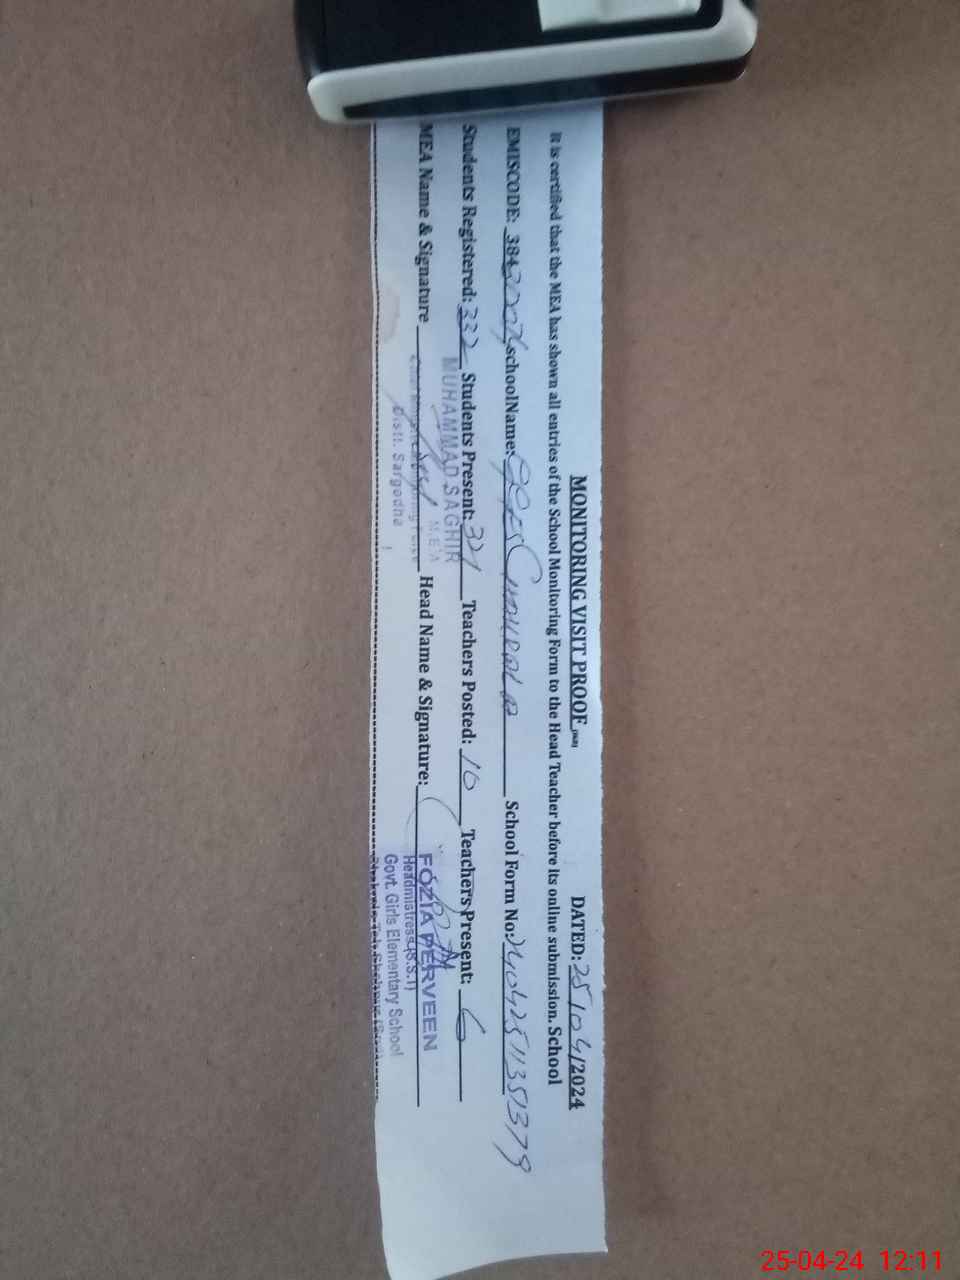 MONITORING VISIT PROOF
DATED: 25/04/2024
It is certified that the MEA has shown all entries of the School Monitoring Form to the Head Teacher before its online submission. School
EMISCODE: 384 schoolName: School Form No:
Students Registered: 332 Students Present: 321 Teachers Posted: 10 Teachers Present: 6
MEA Name & Signature Head Name & Signature:
MUHAMMAD SAGHIR
M.E.A
Distt. Sargodha
FOZIA PERVEEN
Headmistress (S.S.T)
Govt. Girls Elementary School
25-04-24 12:11